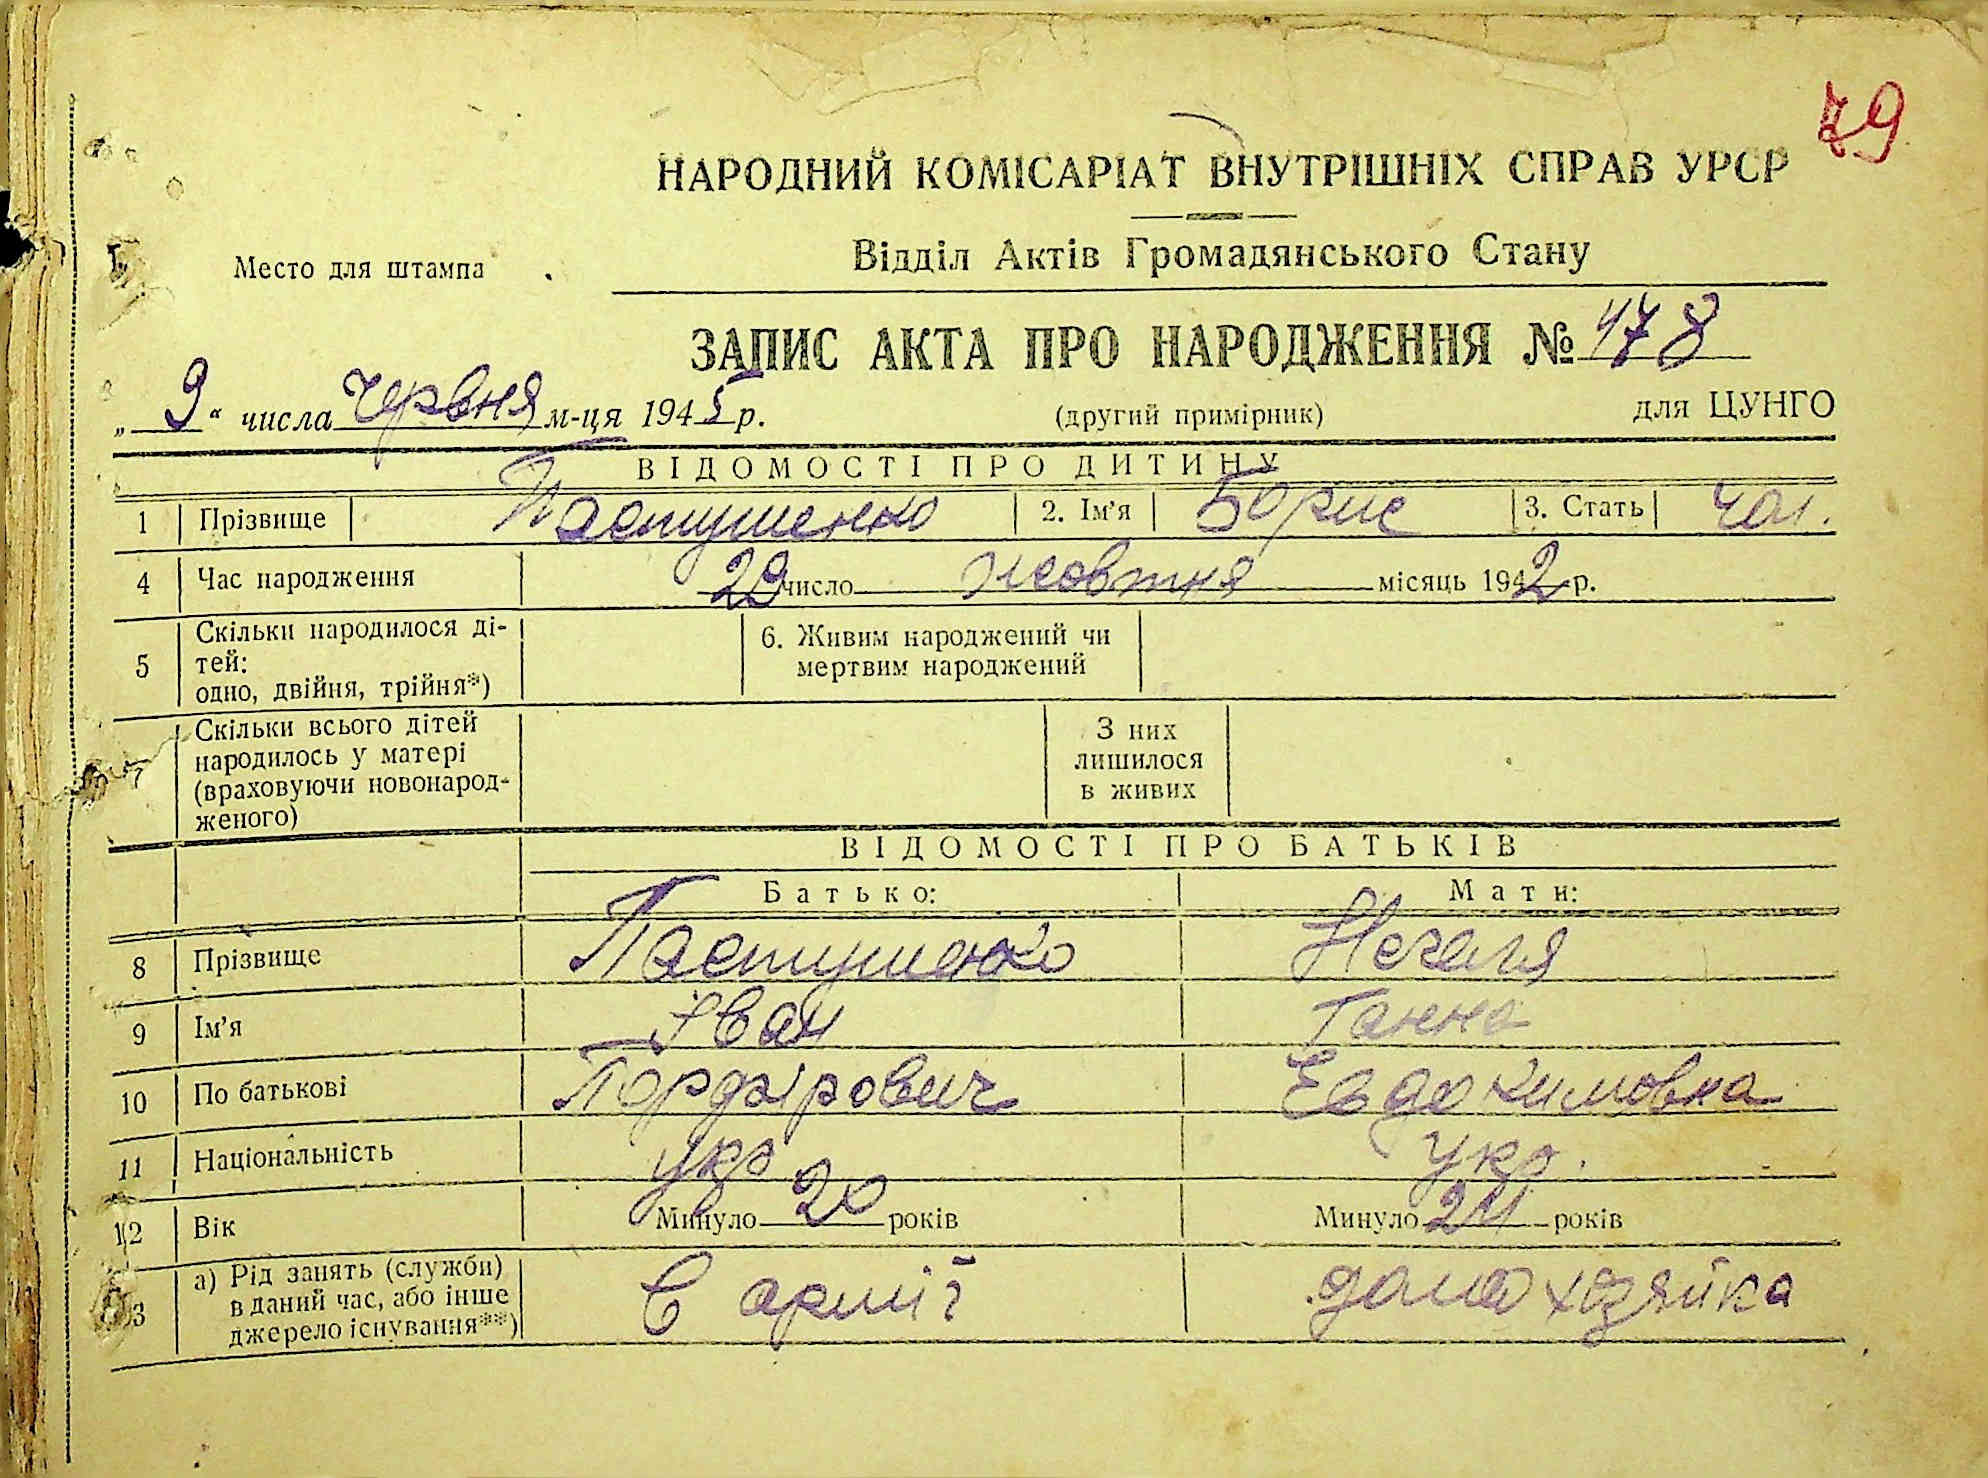 79
НАРОДНИЙ КОМІСАРІАТ ВНУТРІШНІХ СПРАВ УРСР
Место для штампа
Відділ Актів Громадянського Стану
ЗАПИС АКТА ПРО НАРОДЖЕННЯ № 478
„ 9 “ числа червня м-ця 1945 р. (другий примірник) для ЦУНГО
ВІДОМОСТІ ПРО ДИТИНУ
1 Прізвище Пастушенко 2. Ім’я Борис 3. Стать чол.
4 Час народження 29 число жовтня місяць 1942 р.
5 Скільки народилося ді-
тей:
одно, двійня, трійня*)
6. Живим народжений чи
мертвим народжений
7 Скільки всього дітей
народилось у матері
(враховуючи новонарод-
женого)
З них
лишилося
в живих
ВІДОМОСТІ ПРО БАТЬКІВ
Батько: Мати:
8 Прізвище Пастушенко Негеля
9 Ім’я Іван Ганна
10 По батькові Порфірович Евдокимовна
11 Національність укр укр.
12 Вік Минуло 20 років Минуло 24 років
13 а) Рід занять (служби)
в даний час, або інше
джерело існування**)
В армії домохозяйка